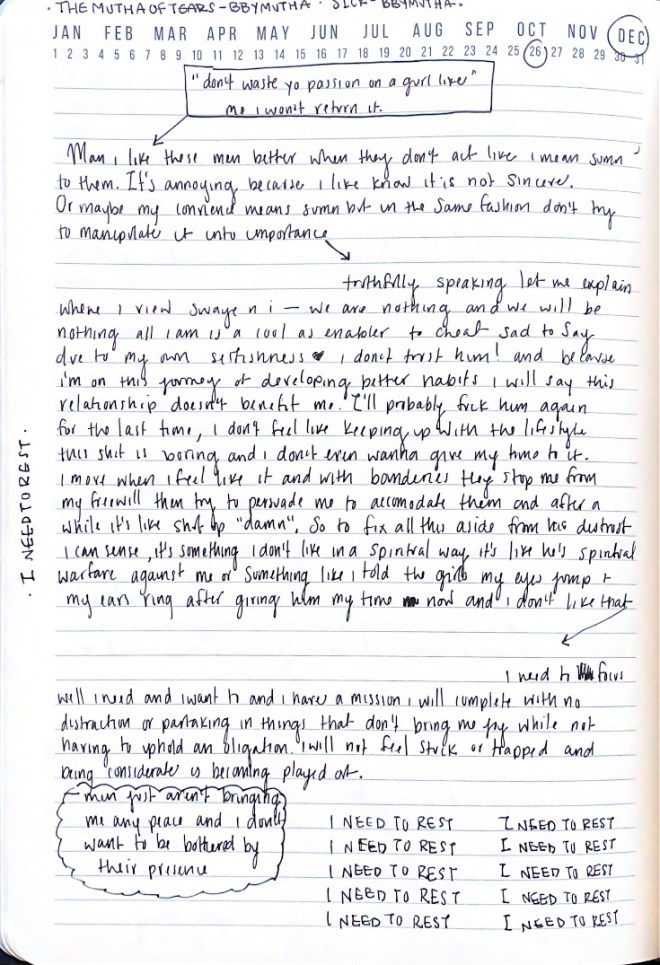 · THE MUTHA OF TEARS - BBYMUTHA · SICK - BBYMUTHA..
JAN FEB MAR APR MAY JUN JUL AUG SEP OCT NOV DEC
1 2 3 4 5 6 7 8 9 10 11 12 13 14 15 16 17 18 19 20 21 22 23 24 25 26 27 28 29 30 31
"don't waste yo passion on a gurl like"
me i won't return it.
Man, i like these men better when they don't act like i mean sumn
to them. It's annoying because i like know it is not sincere.
Or maybe my means sumn but in the same fashion don't try
to manipulate it into importance
truthfully speaking let me explain
where i view n i — we are nothing and we will be
nothing all i am is a cool as enabler to cheat sad to say
due to my own selfishness i don't trust him! and because
i'm on this journey of developing better habits i will say this
relationship doesn't benefit me. I'll probably fuck him again
for the last time, i don't feel like keeping up with the lifestyle
this shit is boring and i don't even wanna give my time to it.
I move when i feel like it and with they stop me from
my freewill then try to persuade me to accomodate them and after a
while it's like shut up "damn". So to fix all this aside from his distrust
i can sense, it's something i don't like in a spiritual way it's like he's spiritual
warfare against me or something like i told the girls my eyes jump +
my ears ring after giving him my time now and i don't like that
i need to focus
well i need and i want to and i have a mission i will complete with no
distraction or partaking in things that don't bring me joy while not
having to uphold an obligation. i will not feel stuck or trapped and
being considerate is becoming played out.
- men just aren't bringing
me any peace and i don't
want to be bothered by
their presence
I NEED TO REST I NEED TO REST
I NEED TO REST I NEED TO REST
I NEED TO REST I NEED TO REST
I NEED TO REST I NEED TO REST
I NEED TO REST I NEED TO REST
· I NEED TO REST ·